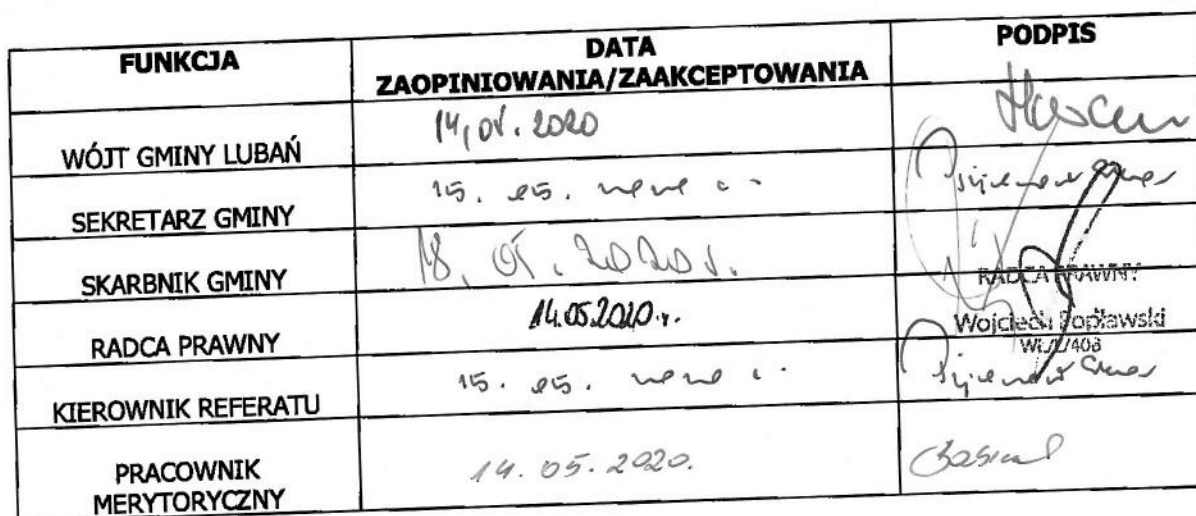 FUNKCJA
DATA
ZAOPINIOWANIA/ZAAKCEPTOWANIA
PODPIS
WÓJT GMINY LUBAŃ
14,05.2020
SEKRETARZ GMINY
15. 05. 2020 r.
SKARBNIK GMINY
18. 05. 2020 r.
RADCA PRAWNY
14.05.2020 r.
RADCA PRAWNY
Wojciech Popławski
KIEROWNIK REFERATU
15. 05. 2020 r.
PRACOWNIK
MERYTORYCZNY
14.05.2020.